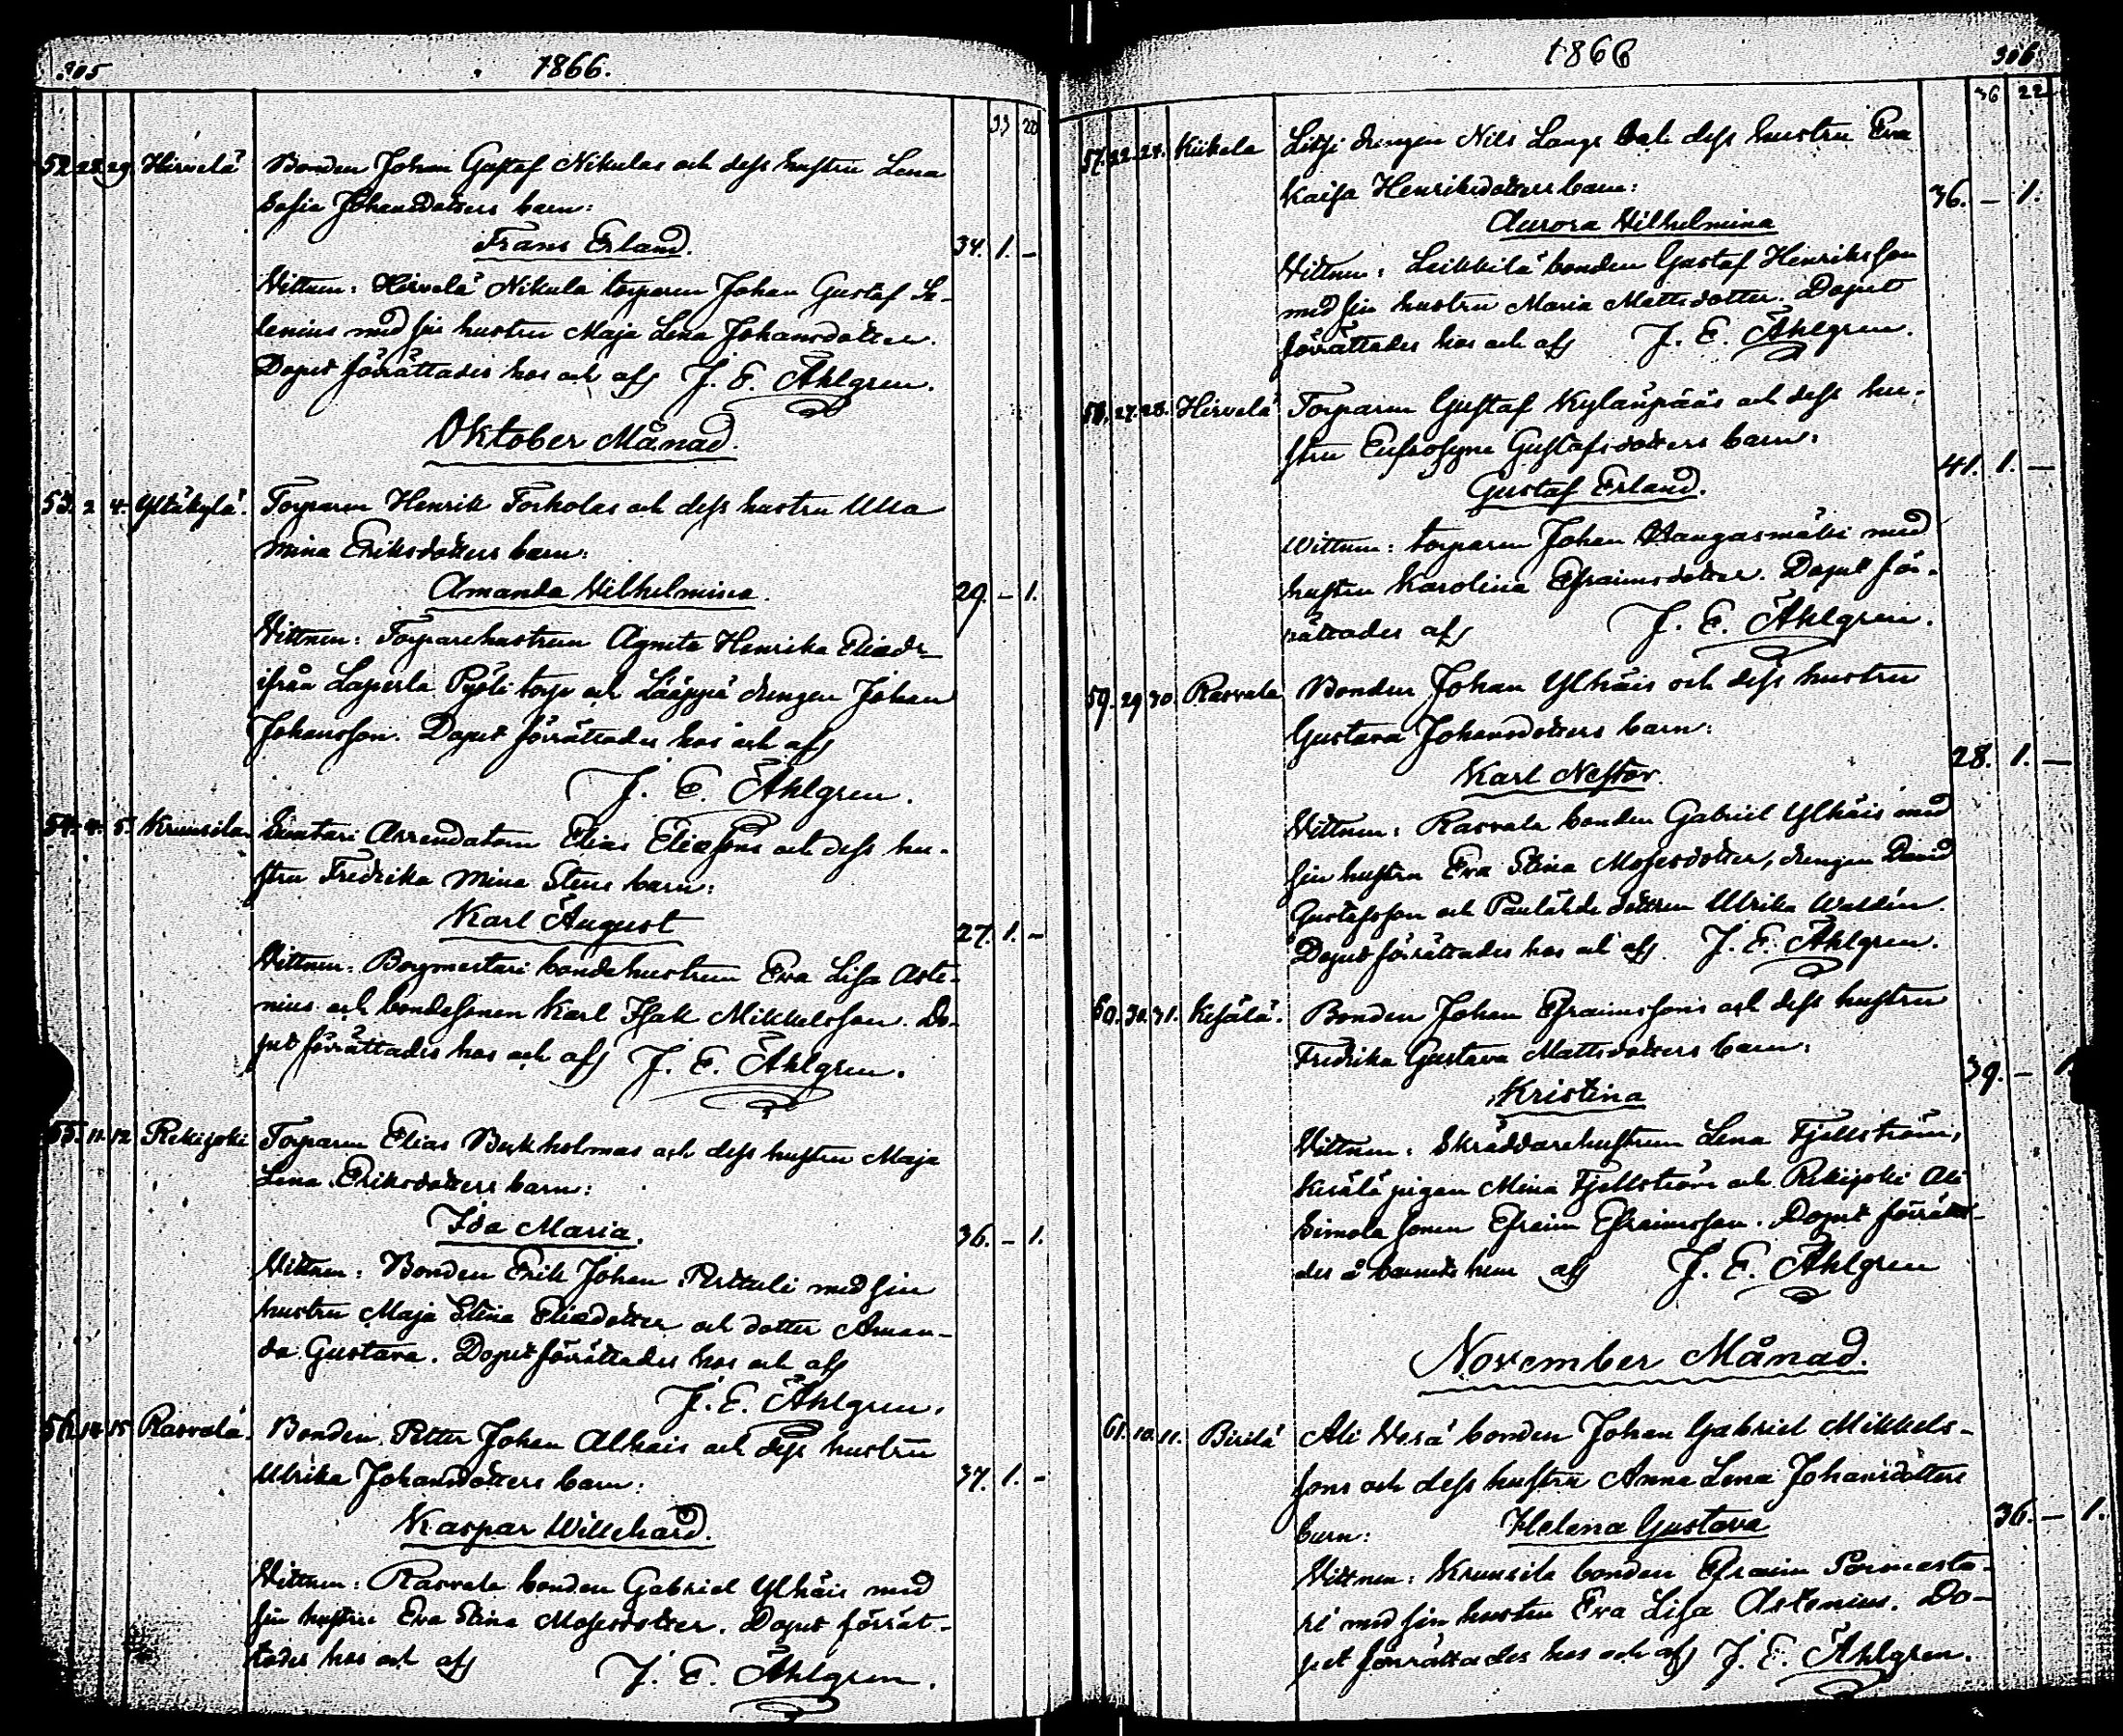 305 1866.
33 20
52. 28. 29. Hirvelä Bonden Johan Gustaf Nikulas och dess hustru Lena
Sofia Johansdotters barn:
Frans Erland. 34. 1. -
Vittnen: Hirvelä Nikula torparen Johan Gustaf Se-
lenius med sin hustru Maja Lena Johansdotter.
Dopet förrättades hos och af J. E. Åhlgren.
Oktober Månad.
53. 2 4. Yltäkylä. Torparen Henrik Torkolas och dess hustru Ulla
Mina Eriksdotters barn:
Amanda Vilhelmina. 29. - 1.
Vittnen: Torparehustrun Agneta Henrika Eliædr
ifrån Laperla Pyöli torp och Lääppä drengen Johan
Johansson. Dopet förrättades hos och af
J. E. Åhlgren.
54. 4. 5. Kruusila Suutari Arrendatorn Elias Eliæsons och dess hu-
stru Fredrika Mina Stens barn:
Karl August 27. 1. -
Vittnen: Borgmestari bondehustrun Eva Lisa Aste-
nius och bondesonen Karl Isak Mikkelsson. Do-
pet förrättades hos och af J. E. Åhlgren.
55. 11. 12. Rekijoki Torparen Elias Bukholmas och dess hustru Maja
Lena Eriksdotters barn:
Ida Maria. 36. - 1.
Vittnen: Bonden Erik Johan Perttuli med sin
hustru Maja Stina Eliædotter och dotter Aman-
da Gustava. Dopet förrättades hos och af
J. E. Åhlgren.
56. 14. 15. Rasvala. Bonden Petter Johan Alhais och dess hustru
Ulrika Johansdotters barn: 37. 1. -
Kaspar Willehard.
Vittnen: Rasvala bonden Gabriel Ylhäis med
sin hustru Eva Stina Mosesdotter. Dopet förrät-
tades hos och af J. E. Åhlgren.
1866 306
36 22
57. 22. 24. Kiikela Litsi drengen Nils Langs och dess hustru Eva
Kaisa Henriksdotters barn: 36. - 1.
Aurora Vilhelmina
Vittnen: Leikkilä bonden Gustaf Henriksson
med sin hustru Maria Mattsdotter. Dopet
förrättades hos och af J. E. Åhlgren.
58. 27. 28. Hirvelä Torparen Gustaf Kylänpääs och dess hu-
stru Eufrosyne Gustafsdotters barn: 41. 1. -
Gustaf Erland.
Wittnen: torparen Johan Hangasmäki med
hustru Karolina Efraimsdotter. Dopet för-
rättades af J. E. Åhlgren.
59. 29 30. Rasvala Bonden Johan Ylhäis och dess hustru
Gustava Johansdotters barn: 28. 1. -
Karl Nestor.
Vittnen: Rasvala bonden Gabriel Ylhäis med
sin hustru Eva Stina Mosesdotter, drengen David
Gustafsson och dottren Ulrika Waldén.
Dopet förrättades hos och af J. E. Åhlgren.
60. 30. 31. Kesälä. Bonden Johan Efraimssons och dess hustru
Fredrika Gustava Mattsdotters barn: 39. - 1.
Kristina
Vittnen: Skräddarehustrun Lena Fjellström,
Kesälä pigan Mina Fjellström och Rekijoki Ali
Simola sonen Efraim Efraimsson. Dopet förrätta-
des å barnets hem af J. E. Åhlgren
November Månad.
61. 10. 11. Pirilä Ali Vesä bonden Johan Gabriel Mikkels-
sons och dess hustru Anna Lena Johansdotters
barn: Helena Gustava 36. - 1.
Vittnen: Kruusila bonden Efraim Pormesta-
ri med sin hustru Eva Lisa Astenius. Do-
pet förrättades hos och af J. E. Åhlgren.